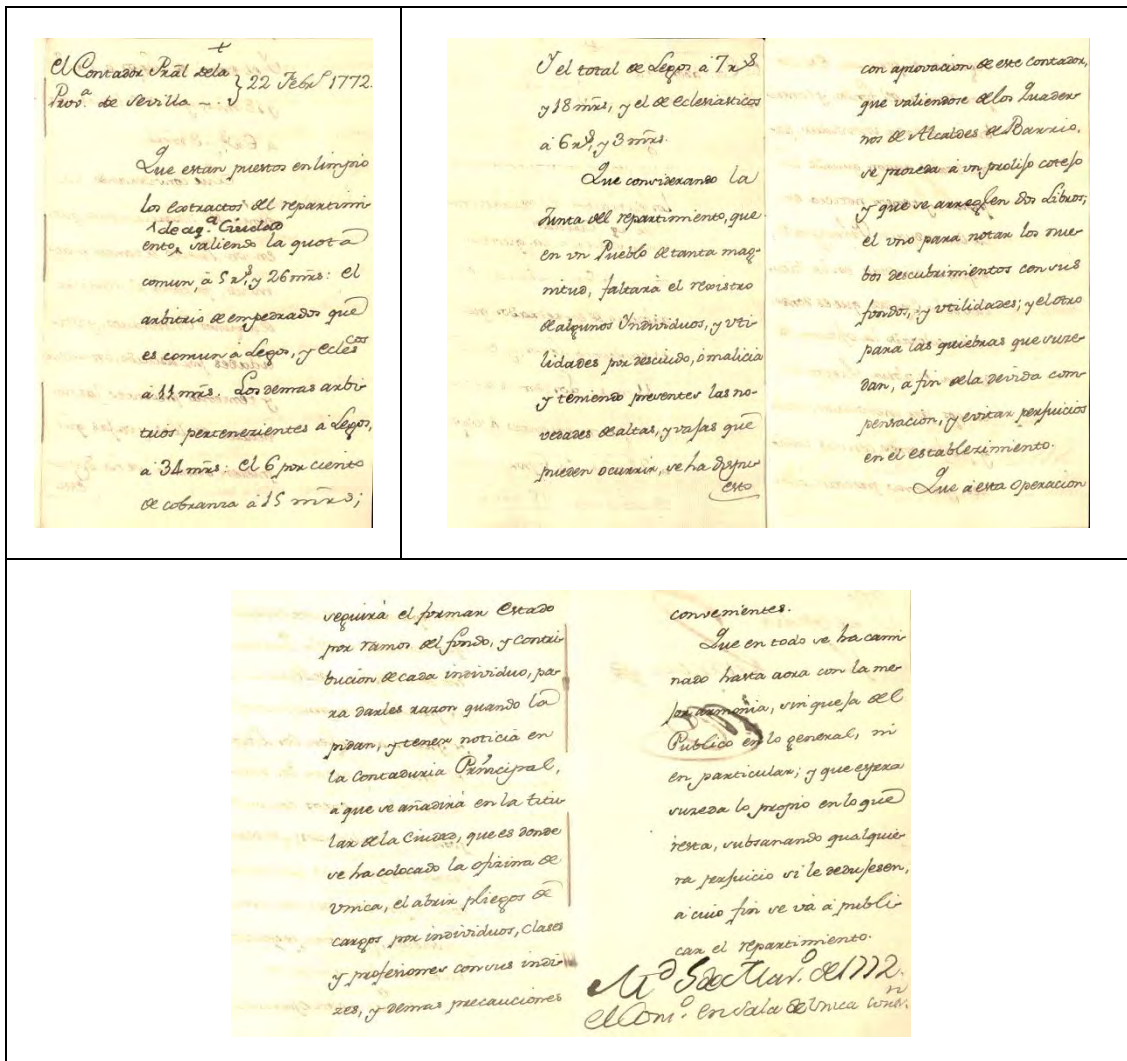 +
El Contador Pral de la
Prov.a de Sevilla
22 Febr.o 1772.
Que están puestos en limpio
los extractos del repartimi-
de aq.a Ciudad
ento, saliendo la quota
comun, à 5 rs, y 26 mrs: el
arbitrio de empedrados que
es comun à Legos, y ecles.cos
à 11 mrs. Los demas arbi-
trios pertenezientes à Legos,
a 34 mrs: el 6 por ciento
de cobranza à 15 mrs;
Y el total de Legos à 7 rs
y 18 mrs, y el de eclesiasticos
à 6 rs, y 3 mrs.
Que considerando la
Junta del repartimiento, que
en un Pueblo de tanta mag-
nitud, faltarà el rexistro
de algunos Yndividuos, y uti-
lidades por descuido, ò malicia
y teniendo presentes las no-
vedades de altas, y vajas que
pueden ocurrir, se ha dispu-
esto
con aprovacion de este Contador,
que valiendose de los Quader-
nos de Alcaldes de Barrio,
se proceda à un prolijo cotejo
y que se arreglen dos Libros;
el uno para notar los nue-
bos descubrimientos con sus
fondos, y utilidades; y el otro
para las quiebras que suze-
dan, a fin de la devida com-
pensacion, y evitar perjuicios
en el establezimiento.
Que a esta operacion
seguirà el formar Estado
por ramos del fondo, y contri-
bucion de cada individuo, pa-
ra darles razon quando la
pidan, y tener noticia en
la Contaduria Principal,
a que se añadirà en la titu-
lar de la Ciudad, que es donde
se ha colocado la ofizina de
Unica, el abrir pliegos de
cargos por individuos, clases
y profesiones con sus indi-
zes, y demas precauciones
convenientes.
Que en todo se ha cami-
nado hasta aora con la me-
jor armonìa, sin queja del
Publico en lo general, ni
en particular; y que espera
suzeda lo propio en lo que
resta, subsanando qualquie-
ra perjuicio si le dedujesen,
a cuio fin se và à publi-
car el repartimiento.
M.d 5 de Mar.o de 1772.
el Con.o en Sala de Unica